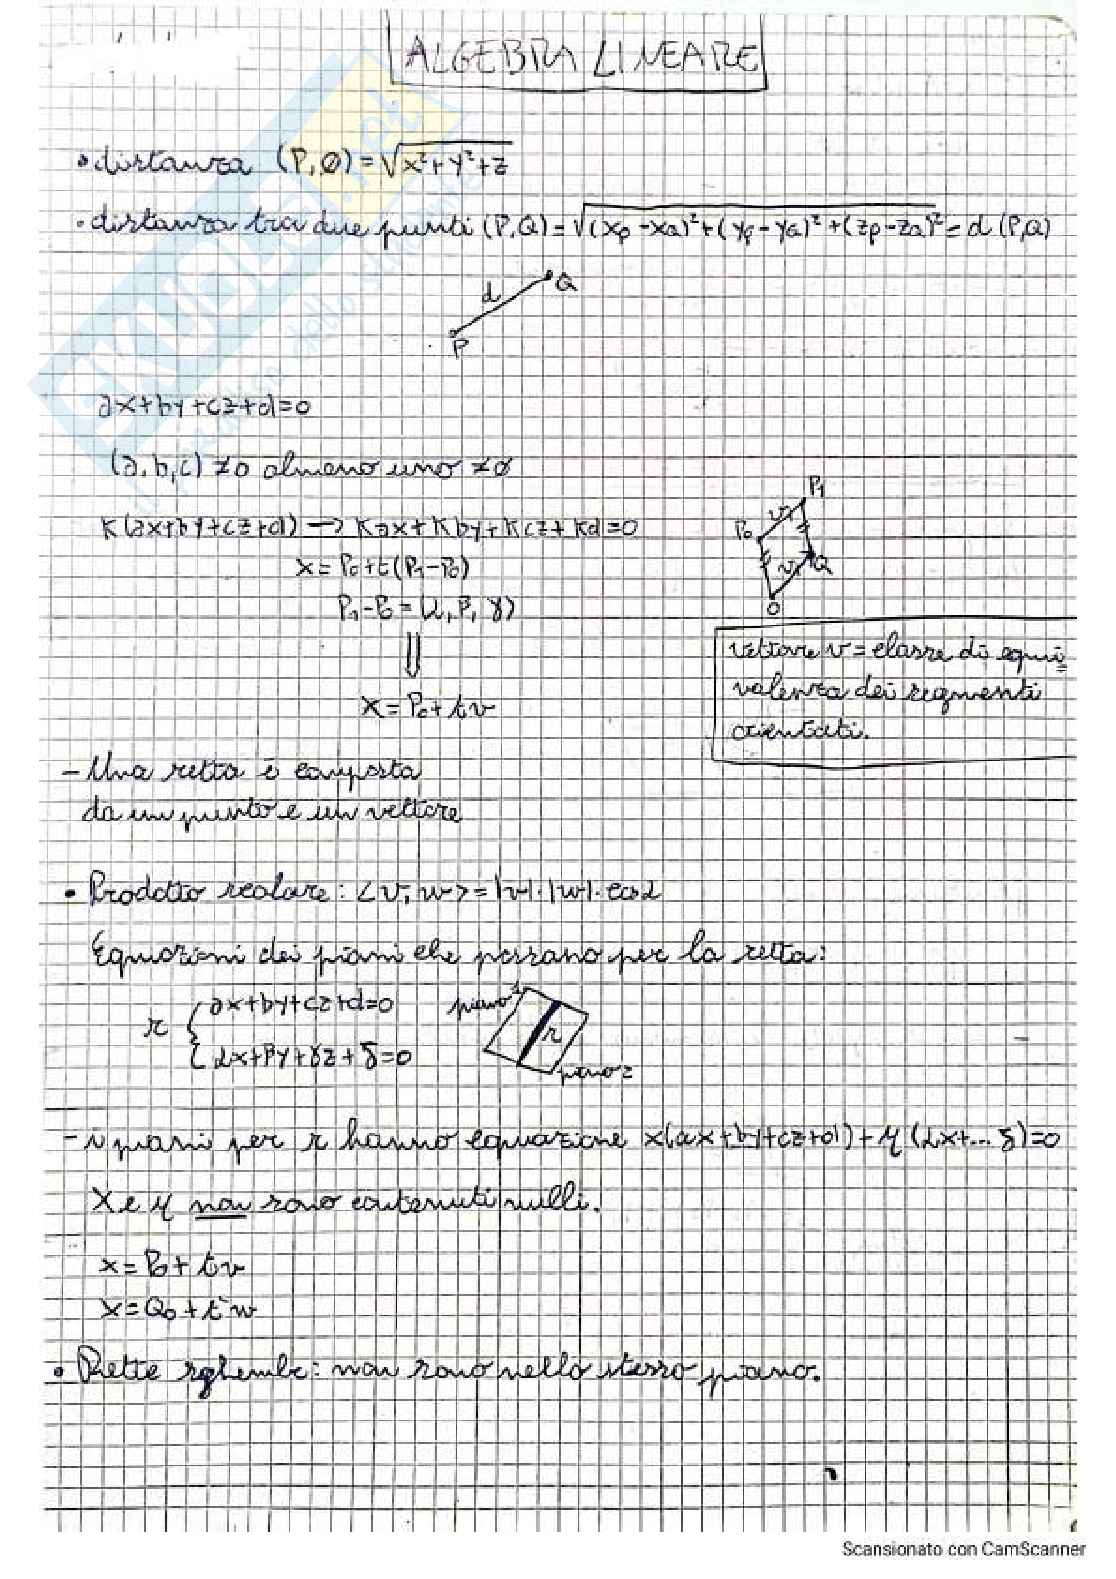 ALGEBRA LINEARE
• distanza (P, O) = √x²+y²+z
• distanza tra due punti (P,Q) = √(xp-xQ)²+(yp-yQ)²+(zp-zQ)² = d (P,Q)
d
Q
P
ax+by+cz+d=0
(a,b,c) ≠0 almeno uno ≠0
K(ax+by+cz+d) → Kax+Kby+Kcz+Kd=0
x = P0+t(P1-P0)
P1-P0 = (α, β, γ)
⇓
x = P0+tv
P1
v
P0
v
Q
O
vettore v = classe di equi
valenza dei segmenti
orientati.
- Una retta è composta
da un punto e un vettore
• Prodotto scalare: <v, w> = |v|·|w|·cosα
Equazioni dei piani che passano per la retta:
r { ax+by+cz+d=0
αx+βy+γz+δ=0
piano 1
r
piano 2
- i piani per r hanno equazione x(ax+by+cz+d)+y(αx+... δ)=0
X e y non sono contenuti nulli.
x = P0+tv
x = Q0+t'w
• Rette sghembe: non sono nello stesso piano.
SKUOLA.net
Scansionato con CamScanner